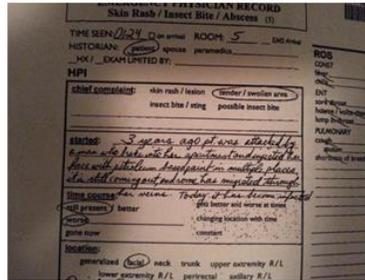 EMERGENCY PHYSICIAN RECORD
Skin Rash / Insect Bite / Abscess (5)
TIME SEEN: 0124 on arrival ROOM: 5 EMS Arrival
HISTORIAN: patient spouse paramedics
HX / EXAM LIMITED BY:
HPI
chief complaint: skin rash / lesion tender / swollen area
insect bite / sting possible insect bite
started: 3 years ago pt. was attacked by
a man who broke into her apartment and injected her
face with petroleum based paint in multiple places
it is still coming out and some has migrated through
her veins. Today it has become infected
time course:
still present better gets better and worse at times
worse changing location with time
gone now constant
location:
generalized facial neck trunk upper extremity R / L
lower extremity R / L perirectal axillary R / L
ROS
CONST
fever
chills
ENT
sore throat
PULMONARY
cough
shortness of breath